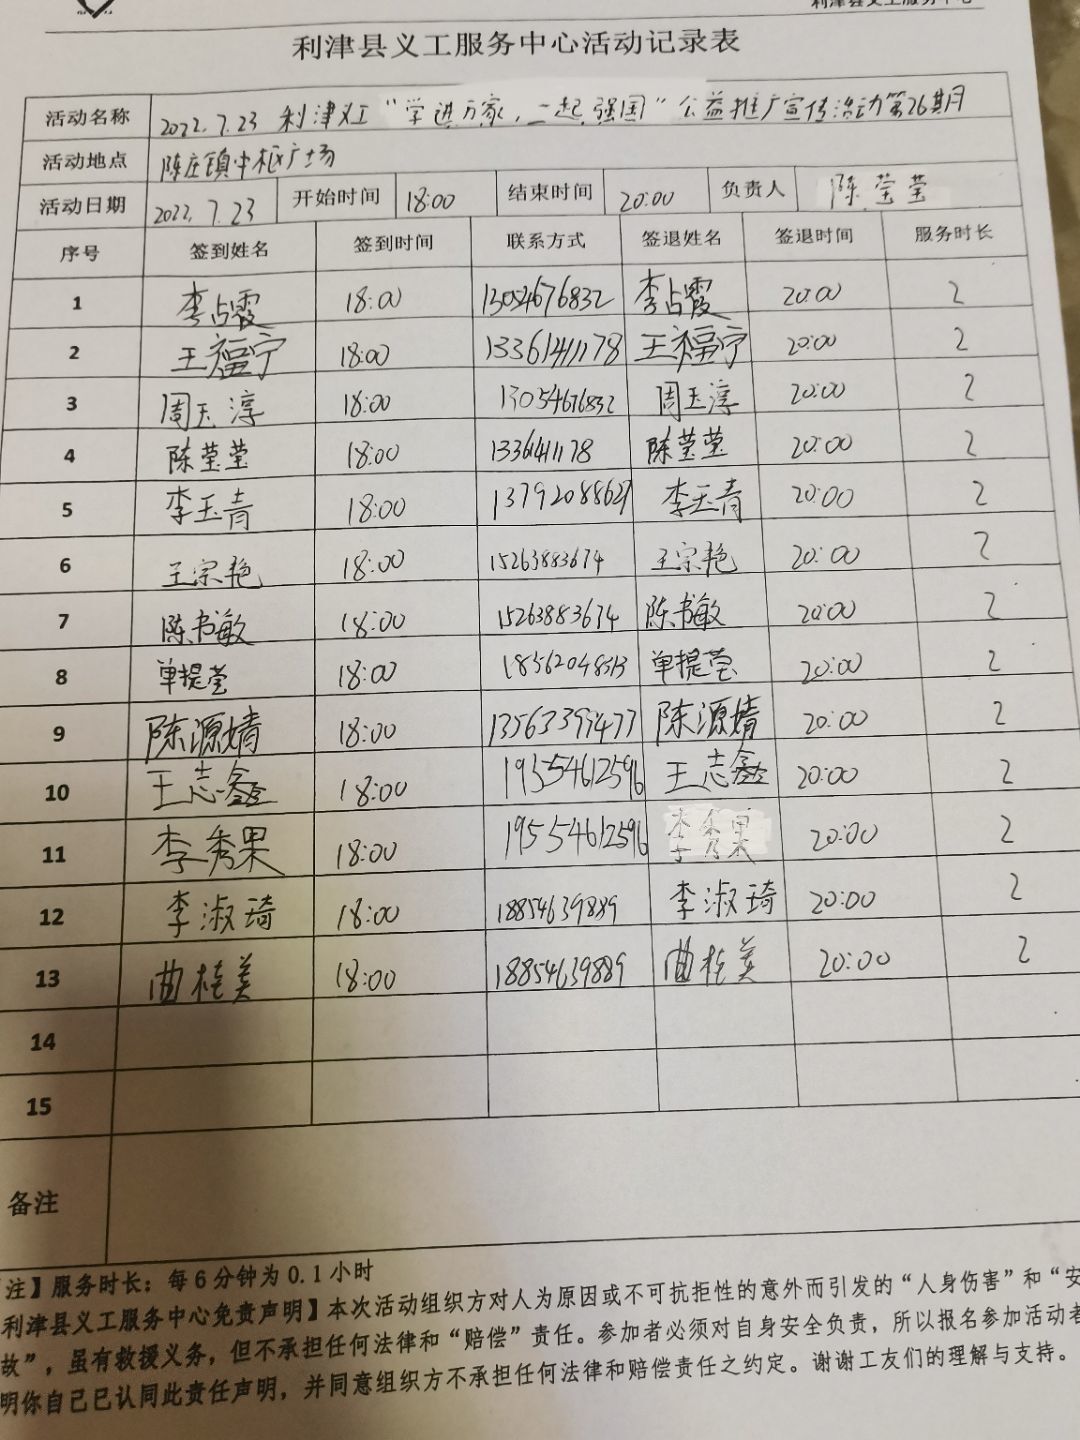 利津县义工服务中心活动记录表
活动名称 2022.7.23 利津义工“学进万家，一起强国”公益推广宣传活动第26期
活动地点 陈庄镇中枢广场
活动日期 2022.7.23 开始时间 18:00 结束时间 20:00 负责人 陈莹莹
序号 签到姓名 签到时间 联系方式 签退姓名 签退时间 服务时长
1 李占霞 18:00 13054676832 李占霞 20:00 2
2 王福宁 18:00 13361411178 王福宁 20:00 2
3 周玉淳 18:00 13054676832 周玉淳 20:00 2
4 陈莹莹 18:00 陈莹莹 20:00 2
5 李玉青 18:00 13792088627 李玉青 20:00 2
6 王宗艳 18:00 15263883674 王宗艳 20:00 2
7 陈书敏 18:00 15263883674 陈书敏 20:00 2
8 单提莹 18:00 18562048513 单提莹 20:00 2
9 陈源婧 18:00 13563399477 陈源婧 20:00 2
10 王志鑫 18:00 19554612596 王志鑫 20:00 2
11 李秀果 18:00 19554612596 李秀果 20:00 2
12 李淑琦 18:00 18854639889 李淑琦 20:00 2
13 曲桂美 18:00 18854639889 曲桂美 20:00 2
14
15
备注
注】服务时长：每6分钟为0.1小时
利津县义工服务中心免责声明】本次活动组织方对人为原因或不可抗拒性的意外而引发的“人身伤害”和“安
故”，虽有救援义务，但不承担任何法律和“赔偿”责任。参加者必须对自身安全负责，所以报名参加活动者
明你自己已认同此责任声明，并同意组织方不承担任何法律和赔偿责任之约定。谢谢工友们的理解与支持。